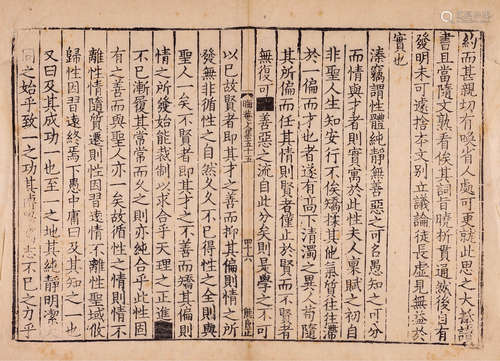 約而甚親切有喚省人處可更就此思之大抵讀
書且當隨文熟看俟其詞旨曉折貫通然後自有
發明未可遽捨本文别立議論徒長虛見無益於
實也
溱竊謂性體純靜無善惡之可名愚知之可分
而情與才者則實寓於此性夫人稟賦之初自
非聖人生知安行不俟矯揉其他氣質往往滯
於一偏而才也者遂有高下清濁之異人苟隨
其所偏而任其情則賢者僅止於賢而不賢者
無復可善惡之流自此分矣則是學之不可
晦菴文集五十五
四十六
以已故賢者即其才之善而抑其偏則情之所
發無非循性之自然久久不已得性之全則與
聖人一矣不賢者即其才之不善而矯其偏則
情之所始能裁制以求合乎天理之正進
不已漸復其常常而久之則亦純合乎此性因
有之善而與聖人亦一矣故循性之情則情不
離性情隨質遷則性因習遠情不離性聖域攸
歸性因習遠終焉下愚中庸曰及其知之一也
又曰及其成功一也至一之地其純靜明潔
同之始乎致一之功其志不已之力乎